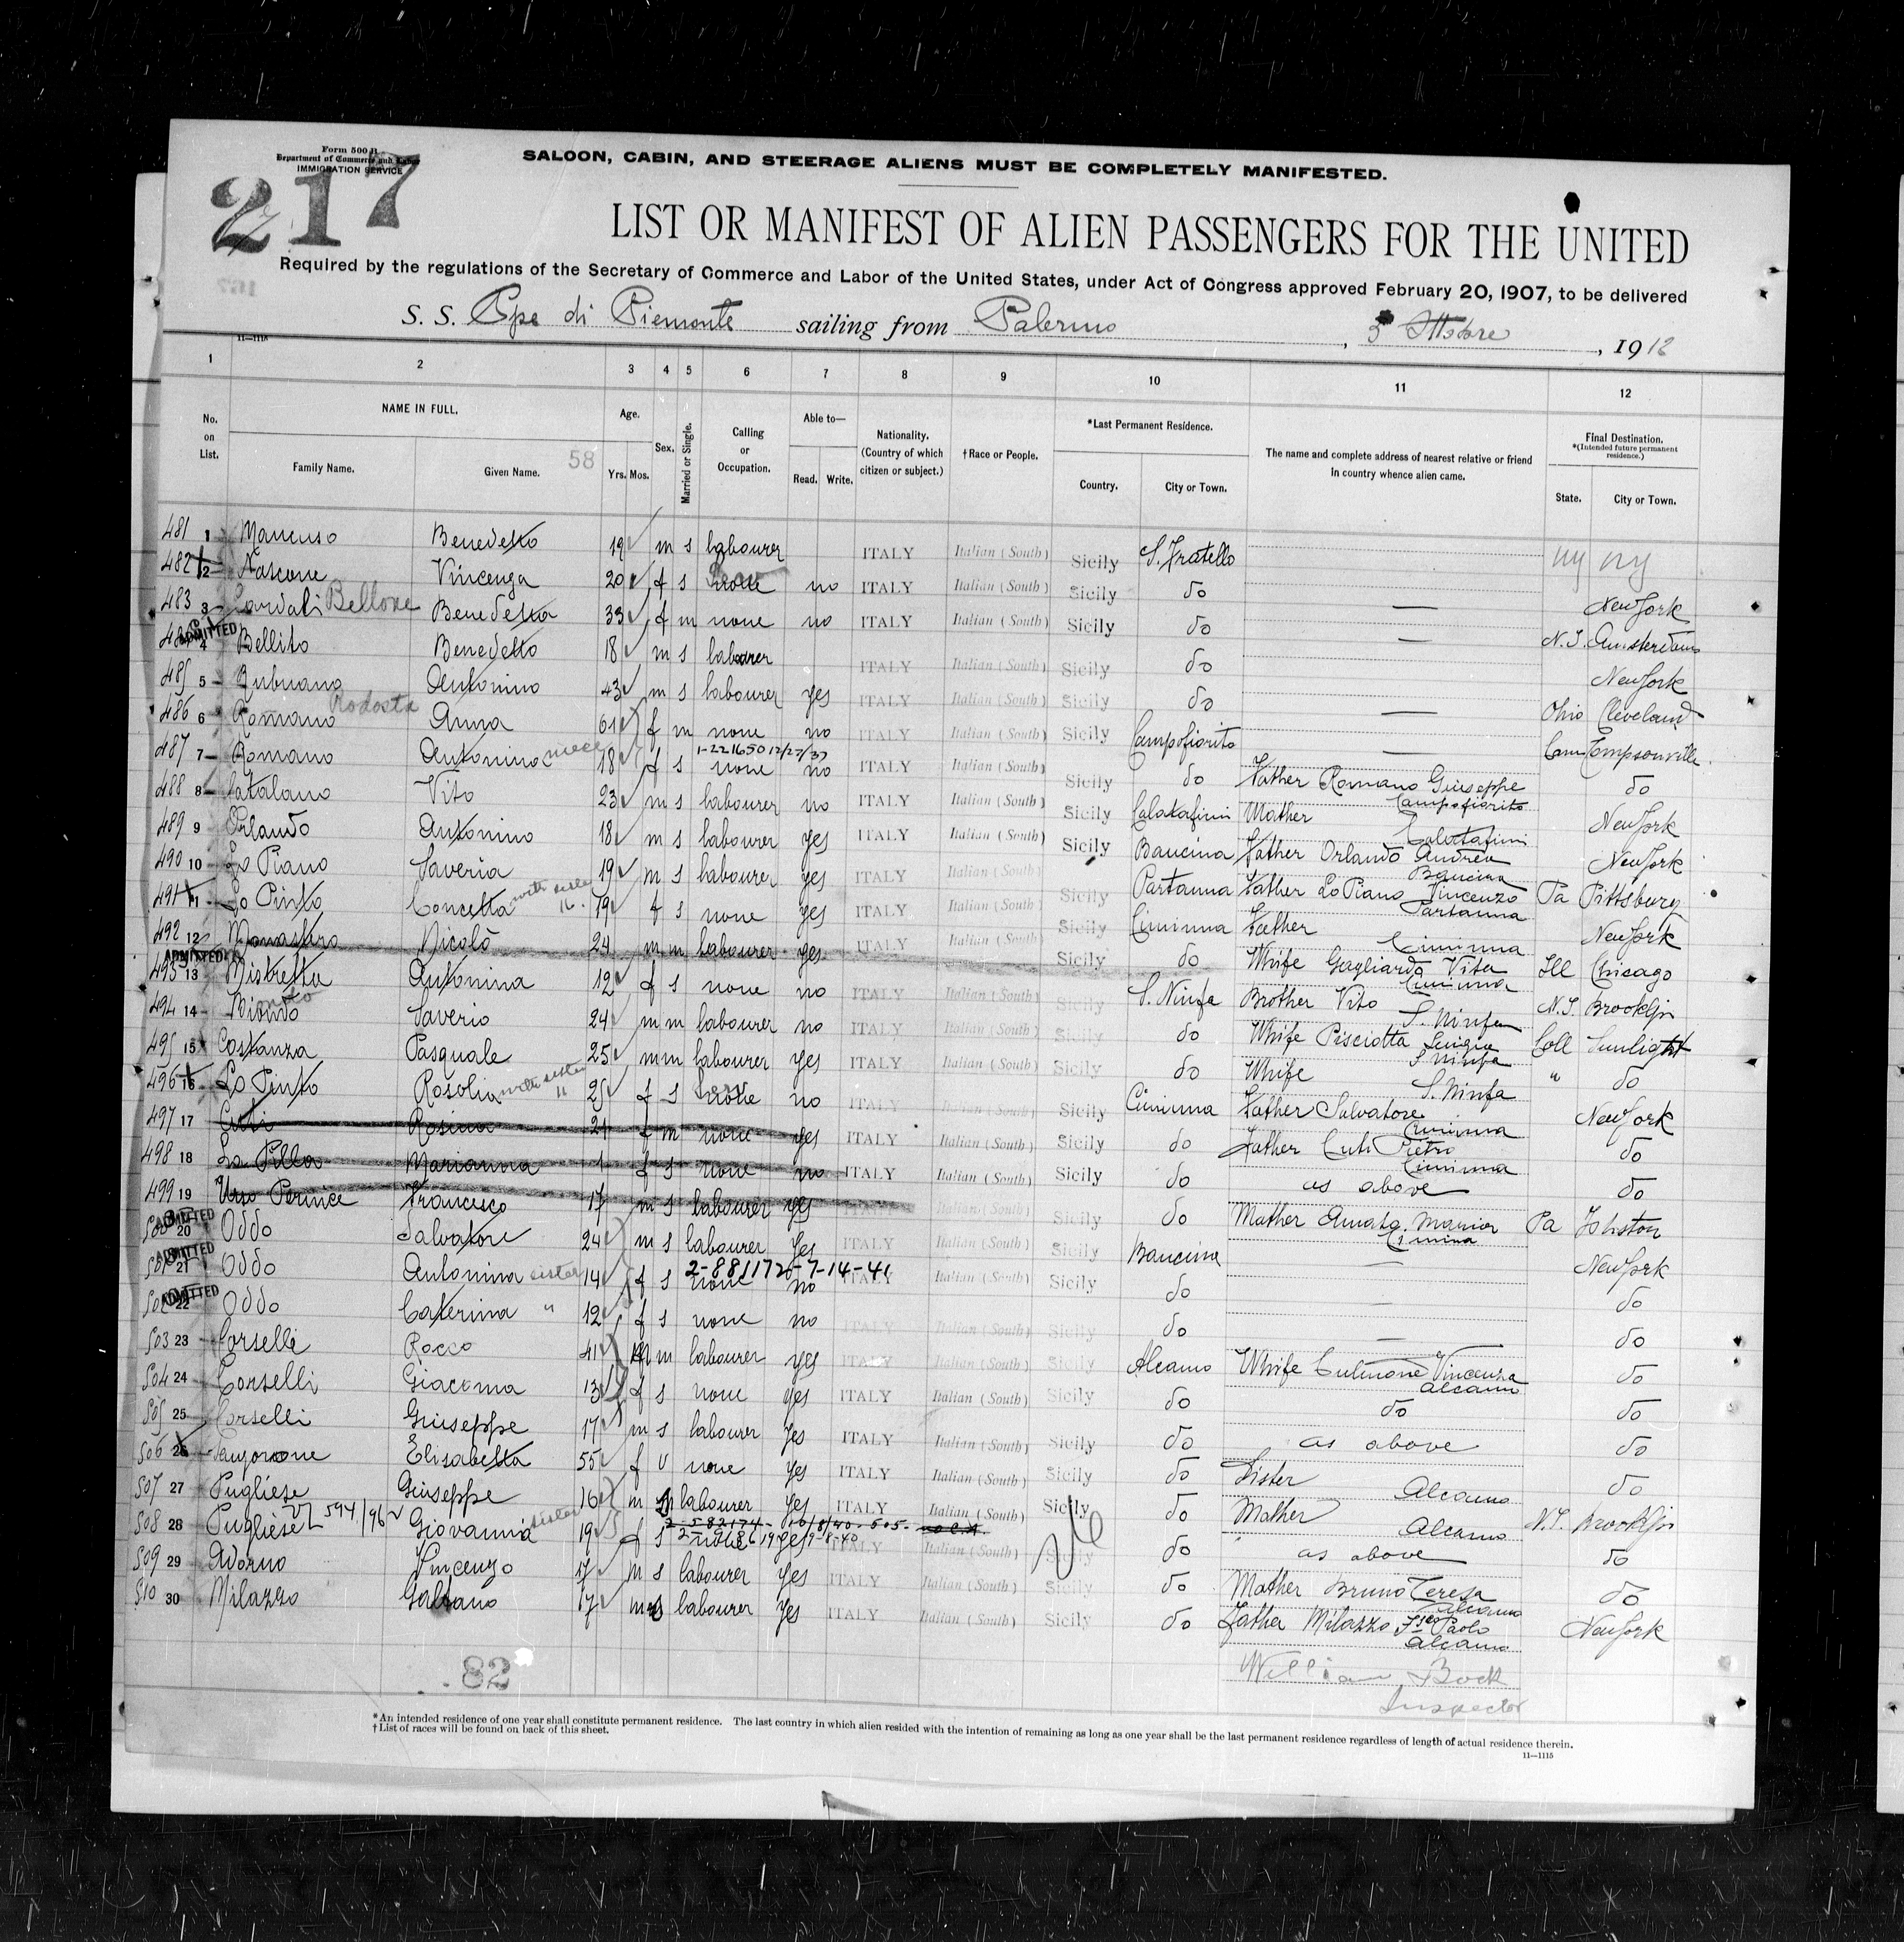 Form 500 B
Department of Commerce and Labor
IMMIGRATION SERVICE
217
SALOON, CABIN, AND STEERAGE ALIENS MUST BE COMPLETELY MANIFESTED.
LIST OR MANIFEST OF ALIEN PASSENGERS FOR THE UNITED
Required by the regulations of the Secretary of Commerce and Labor of the United States, under Act of Congress approved February 20, 1907, to be delivered
S. S. Ppe di Piemonte sailing from Palermo, 5 Ottobre, 1912
11—111A
1 2 3 4 5 6 7 8 9 10 11 12
No. on List. NAME IN FULL. Family Name. Given Name. 58 Age. Yrs. Mos. Sex. Married or Single. Calling or Occupation. Able to— Read. Write. Nationality. (Country of which citizen or subject.) †Race or People. *Last Permanent Residence. Country. City or Town. The name and complete address of nearest relative or friend in country whence alien came. Final Destination. *(Intended future permanent residence.) State. City or Town.
481 1 Mancuso Benedetto 19 m s labourer ITALY Italian (South) Sicily S. Fratello ny ny
482 2 Nascone Vincenza 20 f s none no ITALY Italian (South) Sicily do — New York
483 3 Bellone Benedetta 33 f m none no ITALY Italian (South) Sicily do — N.J. Amsterdam
ADMITTED 4 Bellito Benedetto 18 m s labourer ITALY Italian (South) Sicily do New York
485 5 Antonino 43 m s labourer yes ITALY Italian (South) Sicily do — Ohio Cleveland
486 6 Romano Rodosta Anna 61 f m none no ITALY Italian (South) Sicily Campofiorito — Tompsonville
487 7 Romano Antonina niece 18 f s 1-221650 12/27/37 none no ITALY Italian (South) Sicily do Father Romano Giuseppe Campofiorito do
488 8 Catalano Vito 23 m s labourer no ITALY Italian (South) Sicily Calatafimi Mother Calatafimi New York
489 9 Orlando Antonino 18 m s labourer yes ITALY Italian (South) Sicily Baucina Father Orlando Andrea Baucina New York
490 10 Lo Piano Saveria 19 m s labourer yes ITALY Italian (South) Sicily Partanna Father Lo Piano Vincenzo Partanna Pa Pittsburg
491 11 Lo Pinto Concetta with sister 16. 19 f s none yes ITALY Italian (South) Sicily Ciminna Father Ciminna New York
492 12 Monastero Nicolò 24 m m labourer yes ITALY Italian (South) Sicily do Whife Gagliardo Vita Ciminna Ill Chicago
ADMITTED 493 13 Mistretta Antonina 12 f s none no ITALY Italian (South) Sicily S. Ninfa Brother Vito S. Ninfa N.J. Brooklin
494 14 Biondo Saverio 24 m m labourer no ITALY Italian (South) Sicily do Whife Pisciotta S. Ninfa Coll Sunlight
495 15 Costanza Pasquale 25 m m labourer yes ITALY Italian (South) Sicily do Whife S. Ninfa " do
496 16 Lo Pinto Rosolia with sister 11 25 f s none no ITALY Italian (South) Sicily Ciminna Father Salvatore Ciminna New York
497 17 Cuti Rosina 21 f m none yes ITALY Italian (South) Sicily do Father Cuti Pietro Ciminna do
498 18 La Pilla Marianna 1 f s none no ITALY Italian (South) Sicily do as above do
499 19 Urso Pernice Francesco 17 m s labourer yes Italian (South) Sicily do Mother Amato Maria Cimina Pa Johston
ADMITTED 500 20 Oddo Salvatore 24 m s labourer yes ITALY Italian (South) Sicily Baucina — New York
ADMITTED 501 21 Oddo Antonina sister 14 f s 2-881172-7-14-41 none no ITALY Italian (South) Sicily do — do
ADMITTED 502 22 Oddo Caterina " 12 f s none no ITALY Italian (South) Sicily do — do
503 23 Corselli Rocco 41 m m labourer yes ITALY Italian (South) Sicily Alcamo Whife Culmone Vincenza Alcamo do
504 24 Corselli Giacoma 13 f s none yes ITALY Italian (South) Sicily do do do
505 25 Corselli Giuseppe 17 m s labourer yes ITALY Italian (South) Sicily do as above do
506 26 Elisabetta 55 f v none yes ITALY Italian (South) Sicily do Sister Alcamo do
507 27 Pugliese Giuseppe 16 m labourer yes ITALY Italian (South) Sicily do Mother Alcamo N.J. Brooklin
508 28 Pugliese Giovanna sister 19 f s none yes ITALY Italian (South) Sicily do as above do
509 29 Adorno Vincenzo 17 m s labourer yes ITALY Italian (South) Sicily do Mother Bruno Teresa Alcamo do
510 30 Milazzo Galtano 17 m s labourer yes ITALY Italian (South) Sicily do Father Milazzo Fsco Paolo Alcamo New York
82
William Bock
Inspector
*An intended residence of one year shall constitute permanent residence. The last country in which alien resided with the intention of remaining as long as one year shall be the last permanent residence regardless of length of actual residence therein.
†List of races will be found on back of this sheet.
11—1115